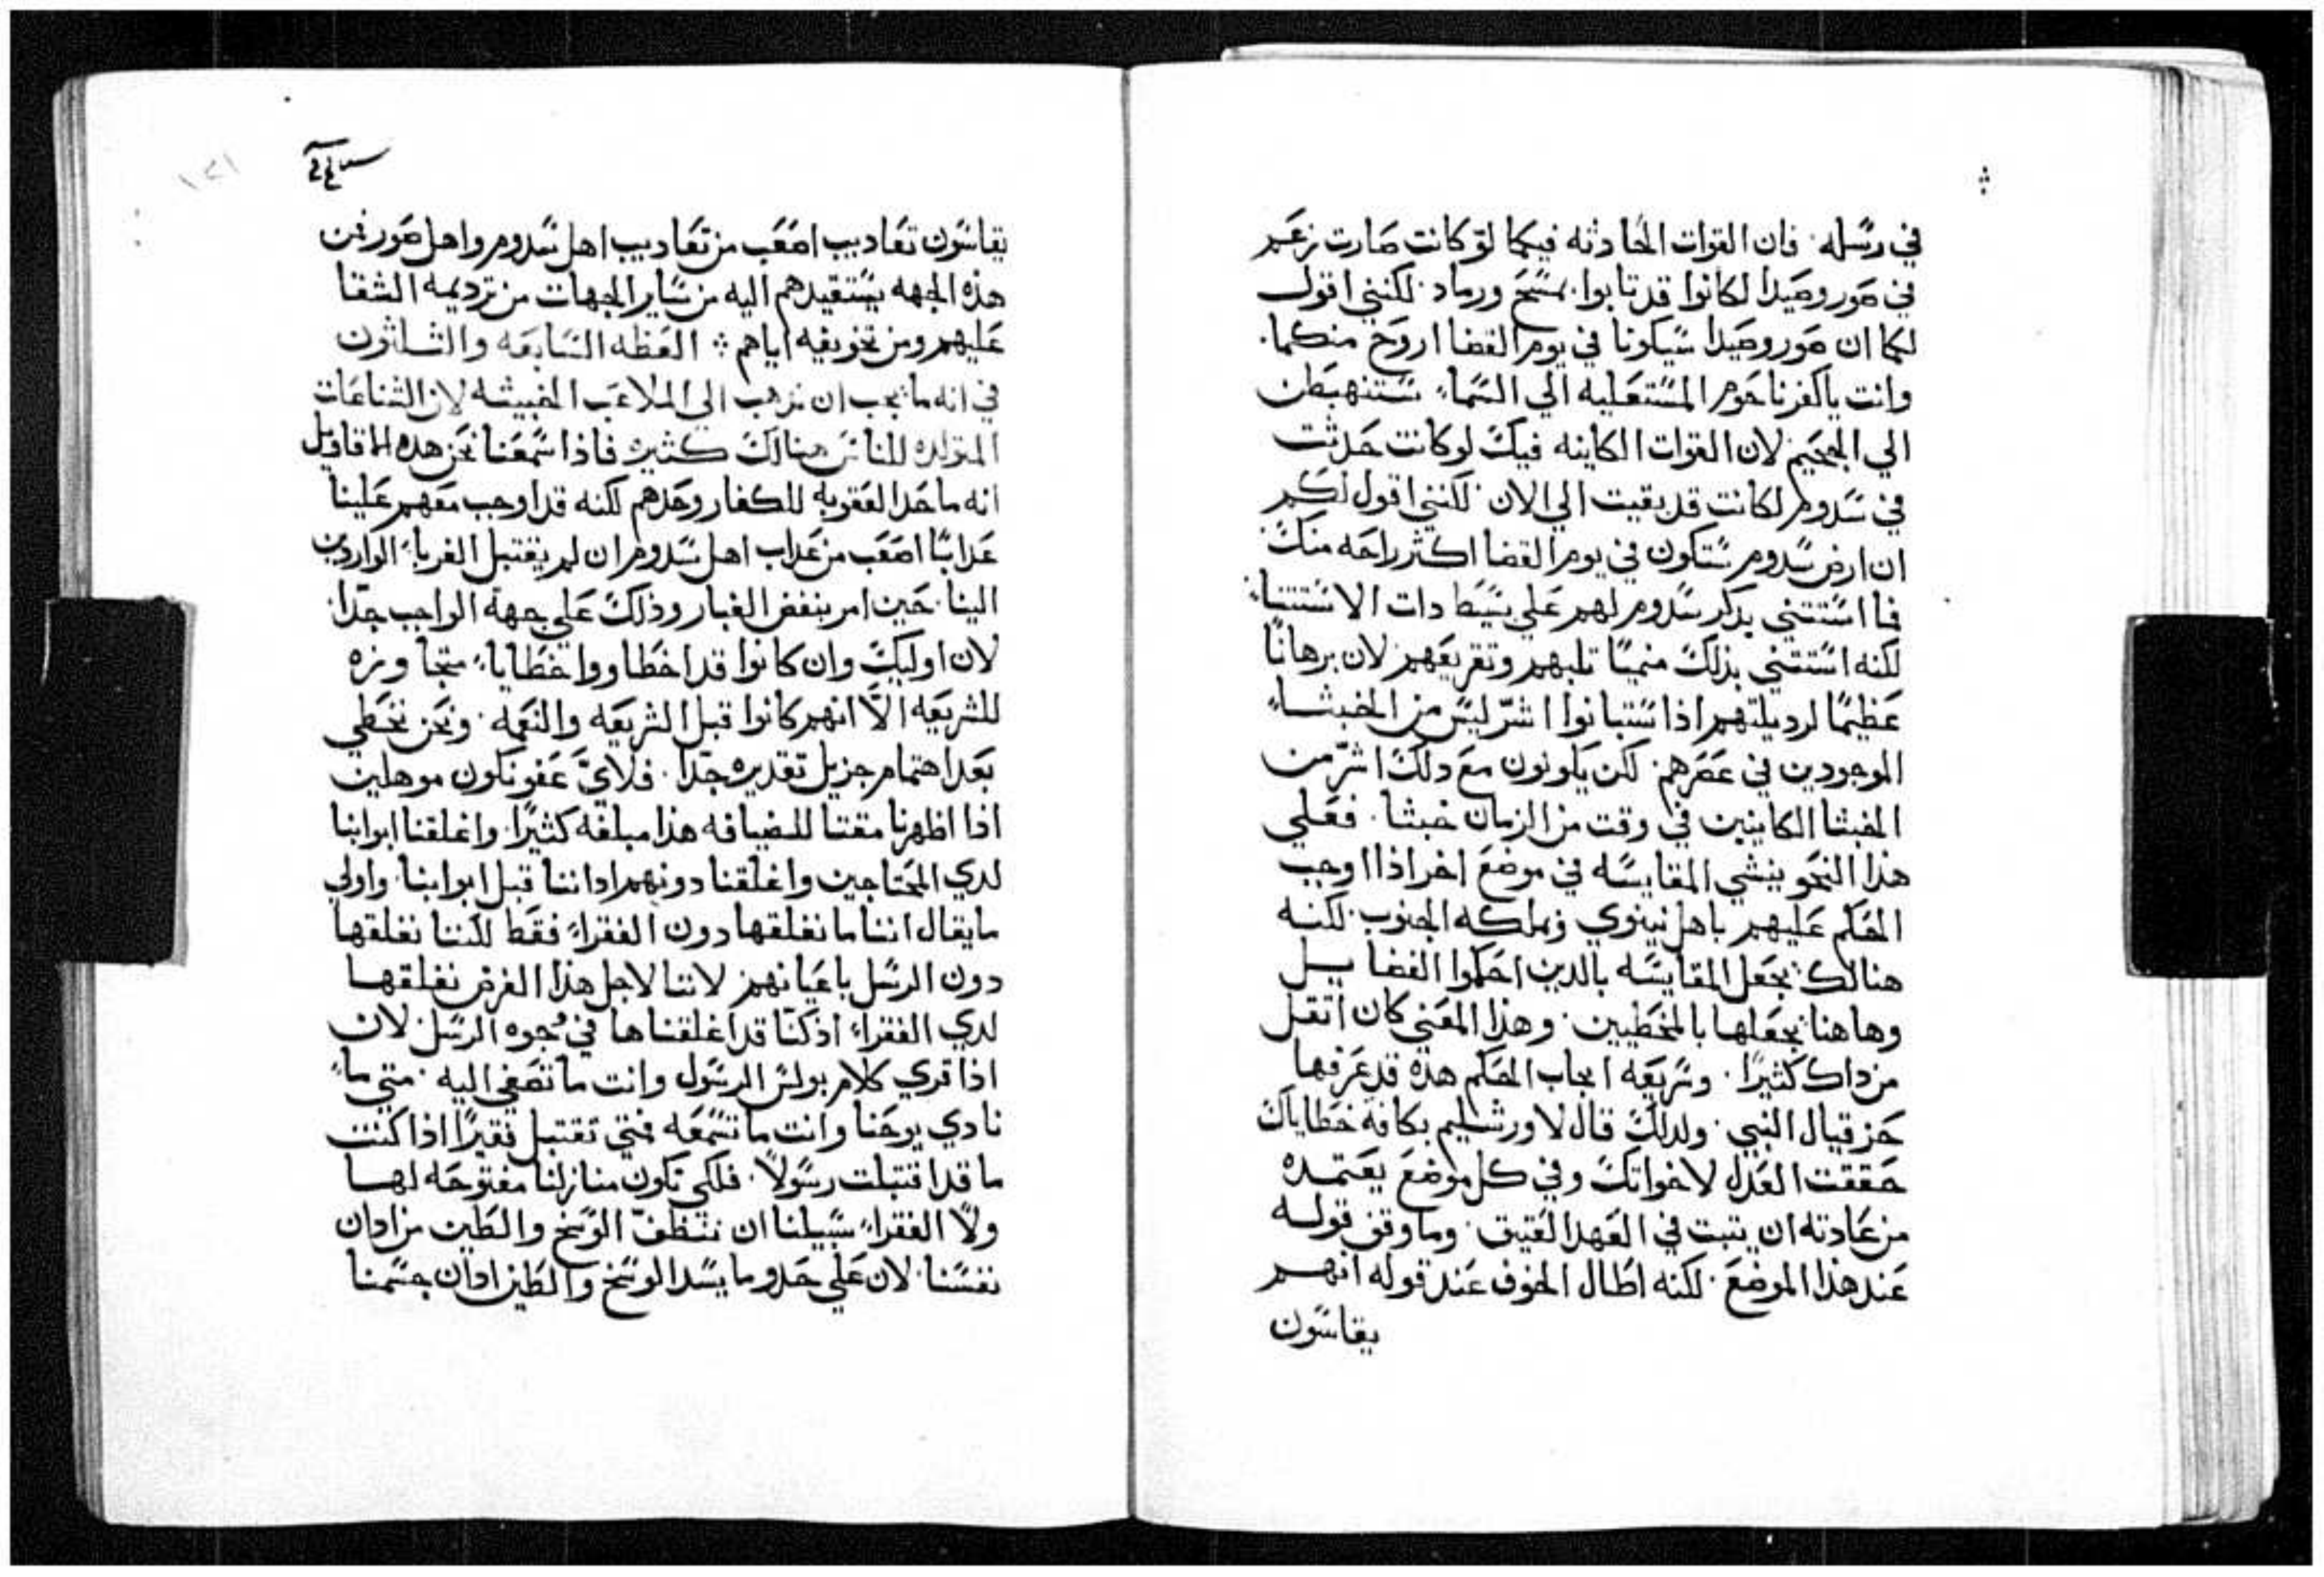 في رسله. فان القوات الحادثه فيكما لو كانت صارت زعم
في صور وصيدا لكانوا قد تابوا بمسح ورماد. لكنني اقول
لكما ان صور وصيدا سيكونا في يوم القضا اروح منكما.
وانت يا كفرناحوم المستعليه الي السماء ستنهبطن
الي الجحيم لان القوات الكاينه فيك لو كانت حدثت
في سدوم لكانت قد بقيت الي الان. لكنني اقول لكم
ان ارض سدوم ستكون في يوم القضا اكثر راحه منك.
فما استثني بذكر سدوم لهم علي بسيط دات الاستثناء
لكنه استثني بذلك منميا تلبهم وتقريعهم لان برهانا
عظيما لرديلتهم اذا ستبانوا اشر ليس من الخبثاء
الموجودين في عصرهم. لكن يكونون مع دلك اشر من
الخبثا الكاينين في وقت من الزمان خبثا. فعلي
هذا النحو ينشي المقايسه في موضع اخر اذا اوجب
الحكم عليهم باهل نينوي وبملكه الجنوب. لكنه
هنالك يجعل المقايسه بالدين احكموا الفضايل
وهاهنا يجعلها بالمخطيين. وهذا المعني كان اتقل
من داك كثيرا. وشريعه ايجاب الحكم هذه قد عرفها
حزقيال النبي. ولدلك قال لاورشليم بكافة خطاياك
حققت العدل لاخواتك وفي كل موضع يعتمده
من عادته ان يتبت في العهد العتيق. وما وقف قوله
عند هذا الموضع. لكنه اطال الخوف عند قوله انهم
يقاسون
١٢١
يقاسون تعاديب اصعب من تعاديب اهل سدوم واهل صور فمن
هذه الجهه يستقيدهم اليه من ساير الجهات من ترديمه الشقا
عليهم ومن تخويفه اياهم ؛ العظه السابعه والثلثون
في انه ما يجب ان نذهب الي الملاعب الخبيثه لان الشناعات
المتولده للناس هنالك كثيره فاذا سمعنا نحن هده الاقاويل
انه ما حدا العقوبه للكفار وحدهم لكنه قد اوجب معهم علينا
عدابا اصعب من عداب اهل سدوم ان لم يقتبل الغرباء الواردين
الينا. حين امر بنفض الغبار وذلك علي جهة الواجب جدا.
لان اوليك وان كانوا قد اخطاووا خطاياء متجاوزه
للشريعه الا انهم كانوا قبل الشريعه والنعمه. ونحن نخطي
بعد اهتمام جزيل تقديره جدا. فلاي عفو نكون موهلين
اذا اظهرنا مقتنا للضيافه هذا مبلغه كثيرا. واغلقنا ابوابنا
لدي المحتاجين واغلقنا دونهم اداننا قبل ابوابنا. واولي
ما يقال اننا ما نغلقها دون الفقراء فقط لكننا نغلقها
دون الرسل باعيانهم. لاننا لاجل هذا الغرض نغلقها
لدي الفقراء اذ كنا قد اغلقناها في وجوه الرسل. لان
اذا قري كلام بولس الرسول وانت ما تصغي اليه. متي ما
نادي يوحنا وانت ما تسمعه فمتي تقتبل فقيرا اذا كنت
ما قد اقتبلت رسولا. فلكي تكون منازلنا مفتوحه لها
ولا الفقراء سبيلنا ان نتنظف الوسخ والطين من ادان
نفسنا. لان علي حدو ما يسد الوسخ والطين ادان جسمنا